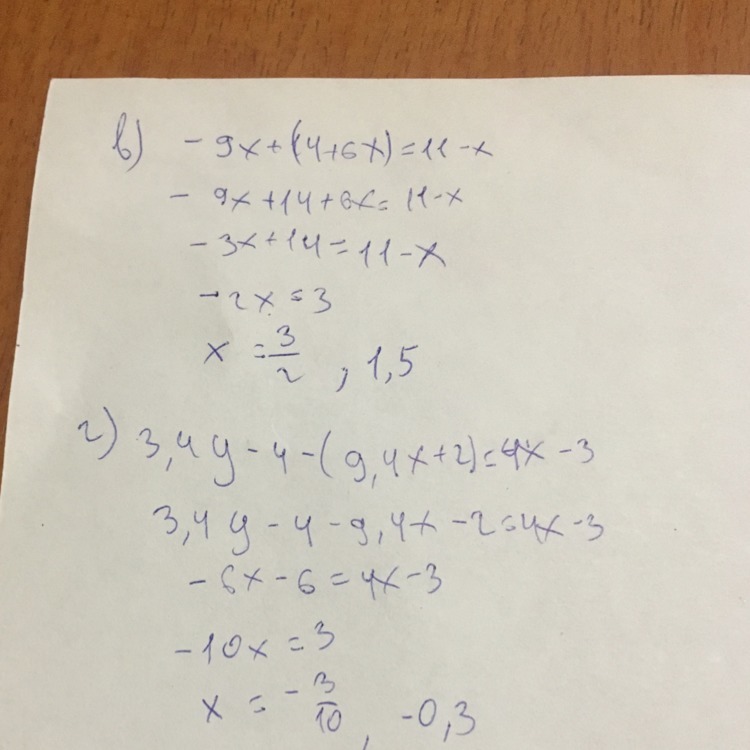 в) - 9x+(14+6x)=11-x
- 9x+14+6x=11-x
-3x+14=11-x
-2x=3
x=3/2, 1,5
г) 3,4y-4-(9,4x+2)=4x-3
3,4y-4-9,4x-2=4x-3
-6x-6=4x-3
-10x=3
x=-3/10, -0,3